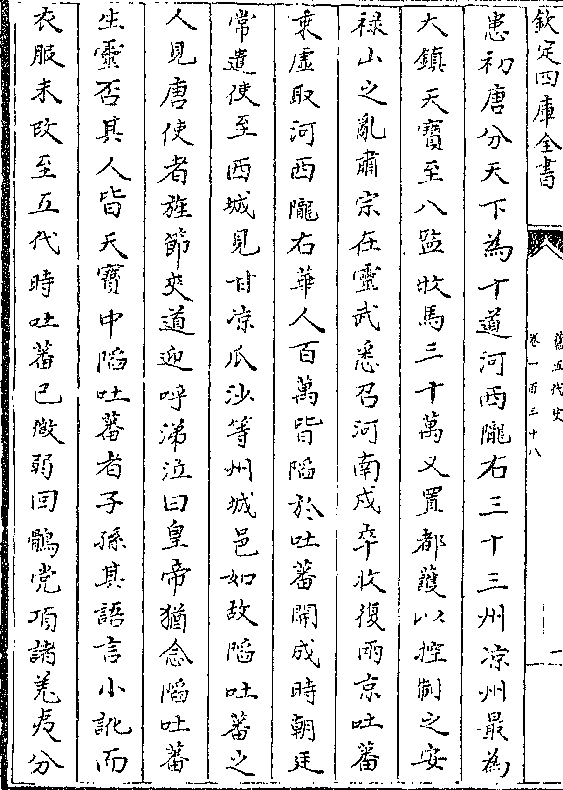 欽定四庫全書
舊五代史
卷一百三十八
一
患初唐分天下為十道河西隴右三十三州凉州最為
大鎮天寶至八監牧馬三十萬又置都護以控制之安
禄山之亂肅宗在靈武悉召河南戍卒收復兩京吐蕃
乘虛取河西隴右華人百萬皆陷於吐蕃開成時朝廷
常遣使至西域見甘凉瓜沙等州城邑如故陷吐蕃之
人見唐使者旌節夾道迎呼涕泣曰皇帝猶念陷吐蕃
生靈否其人皆天寶中陷吐蕃者子孫其語言小訛而
衣服未改至五代時吐蕃已微弱回鶻党項諸羌夷分